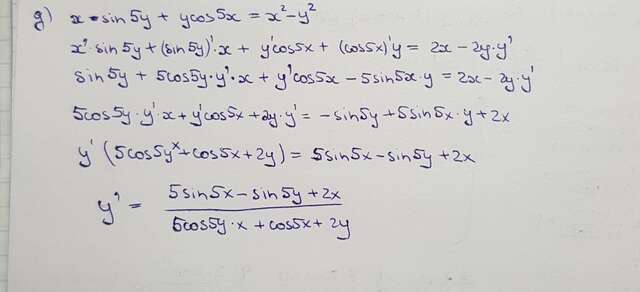 g) x · sin5y + ycos5x = x² - y²
x' · sin5y + (sin5y)' · x + y'cos5x + (cos5x)'y = 2x - 2y · y'
sin5y + 5cos5y · y' · x + y'cos5x - 5sin5x · y = 2x - 2y · y'
5cos5y · y' · x + y'cos5x + 2y · y' = -sin5y + 5sin5x · y + 2x
y' (5cos5y x + cos5x + 2y) = 5sin5x - sin5y + 2x
y' = (5sin5x - sin5y + 2x) / (5cos5y · x + cos5x + 2y)